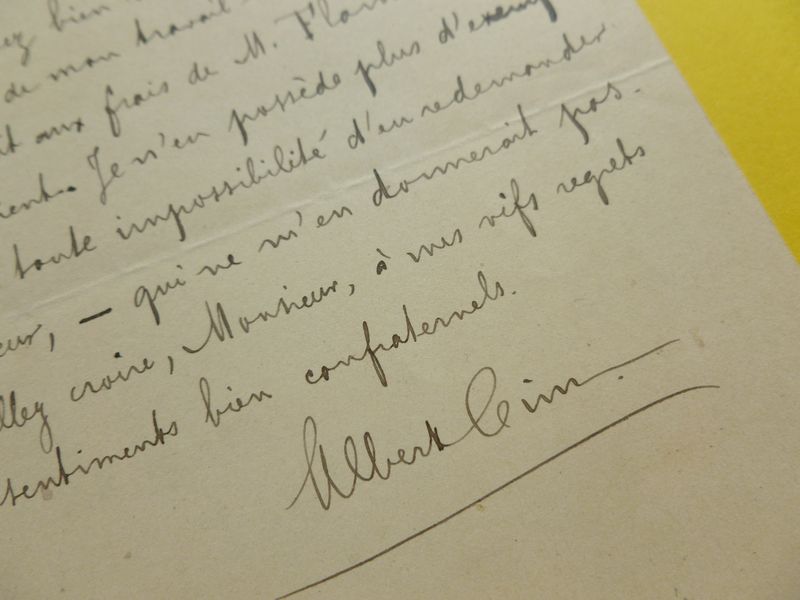 bien
de mon travail
aux frais de M. Flam
Je n'en possède plus d'exemp
toute impossibilité d'en redemander.
eur, — qui ne m'en donnerait pas.
llez croire, Monsieur, à mes vifs regrets
sentiments bien confraternels.
Albert Cim.